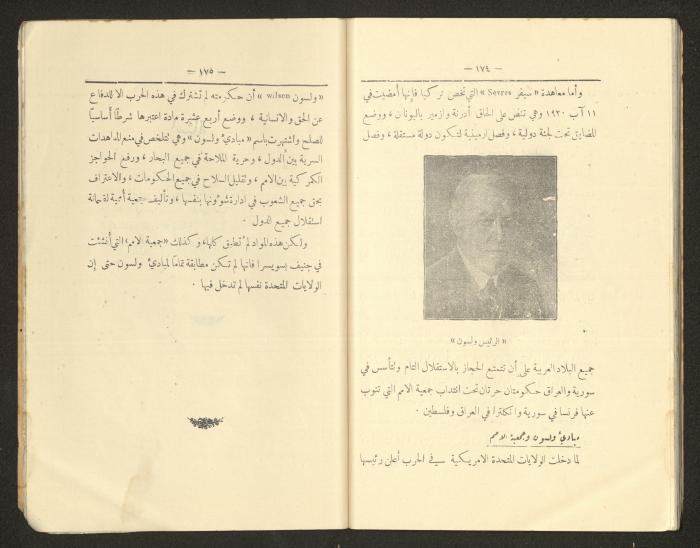 — ١٧٤ —
وأما معاهدة « سيفر Sevres » التي تخص تركيا فإنها أمضيت في
١١ آب ١٩٢٠ وهي تنص على الحاق أدرنة وازمير باليونان ، ووضع
المضايق تحت لجنة دولية ، وفصل ارمينية لتكون دولة مستقلة ، وفصل
« الرئيس ولسون »
جميع البلاد العربية على أن تتمتع الحجاز بالاستقلال التام ولتأسس في
سورية والعراق حكومتان حرتان تحت انتداب جمعية الامم التي تنوب
عنها فرنسا في سورية وانكلترا في العراق وفلسطين .
مبادئ ولسون وجمعية الامم
لما دخلت الولايات المتحدة الامريكية في الحرب أعلن رئيسها
— ١٧٥ —
« ولسون wilson » أن حكومته لم تشترك في هذه الحرب الا للدفاع
عن الحق والانسانية ، ووضع أربع عشرة مادة اعتبرها شرطاً أساسياً
للصلح واشتهرت باسم « مبادئ ولسون » وهي تتلخص في منع المعاهدات
السرية بين الدول ، وحرية الملاحة في جميع البحار ، ورفع الحواجز
الكمركية بين الامم ، وتقليل السلاح في جميع الحكومات ، والاعتراف
بحق جميع الشعوب في ادارة شؤونها بنفسها ، وتأليف جمعية أممية لضمانة
استقلال جميع الدول .
ولكن هذه المواد لم تطبق كلها ، وكذلك « جمعية الامم » التي أنشئت
في جنيف بسويسرا فانها لم تكن مطابقة تماماً لمبادئ ولسون حتى إن
الولايات المتحدة نفسها لم تدخل فيها .